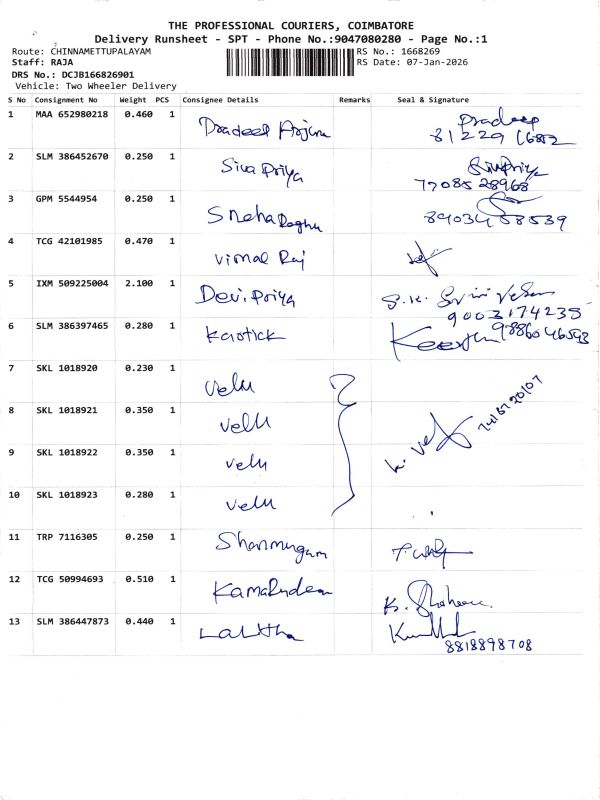 THE PROFESSIONAL COURIERS, COIMBATORE
Delivery Runsheet - SPT - Phone No.:9047080280 - Page No.:1
Route: CHINNAMETTUPALAYAM RS No.: 1668269
Staff: RAJA RS Date: 07-Jan-2026
DRS No.: DCJB166826901
Vehicle: Two Wheeler Delivery
S No Consignment No Weight PCS Consignee Details Remarks Seal & Signature
1 MAA 652980218 0.460 1 Pradeep Arjun Pradeep
2 SLM 386452670 0.250 1 Siva Priya SivaPriya
77085 28968
3 GPM 5544954 0.250 1 Sneha Raghu
89034 58539
4 TCG 42101985 0.470 1 Vimal Raj
5 IXM 509225004 2.100 1 Devi Priya
9003174235
6 SLM 386397465 0.280 1 Kartick 9886046598
7 SKL 1018920 0.230 1 Velu
8 SKL 1018921 0.350 1 Velu
9 SKL 1018922 0.350 1 Velu
10 SKL 1018923 0.280 1 Velu
11 TRP 7116305 0.250 1 Shanmugam
12 TCG 50994693 0.510 1 Kamarudeen
13 SLM 386447873 0.440 1 Lalitha
8818898708